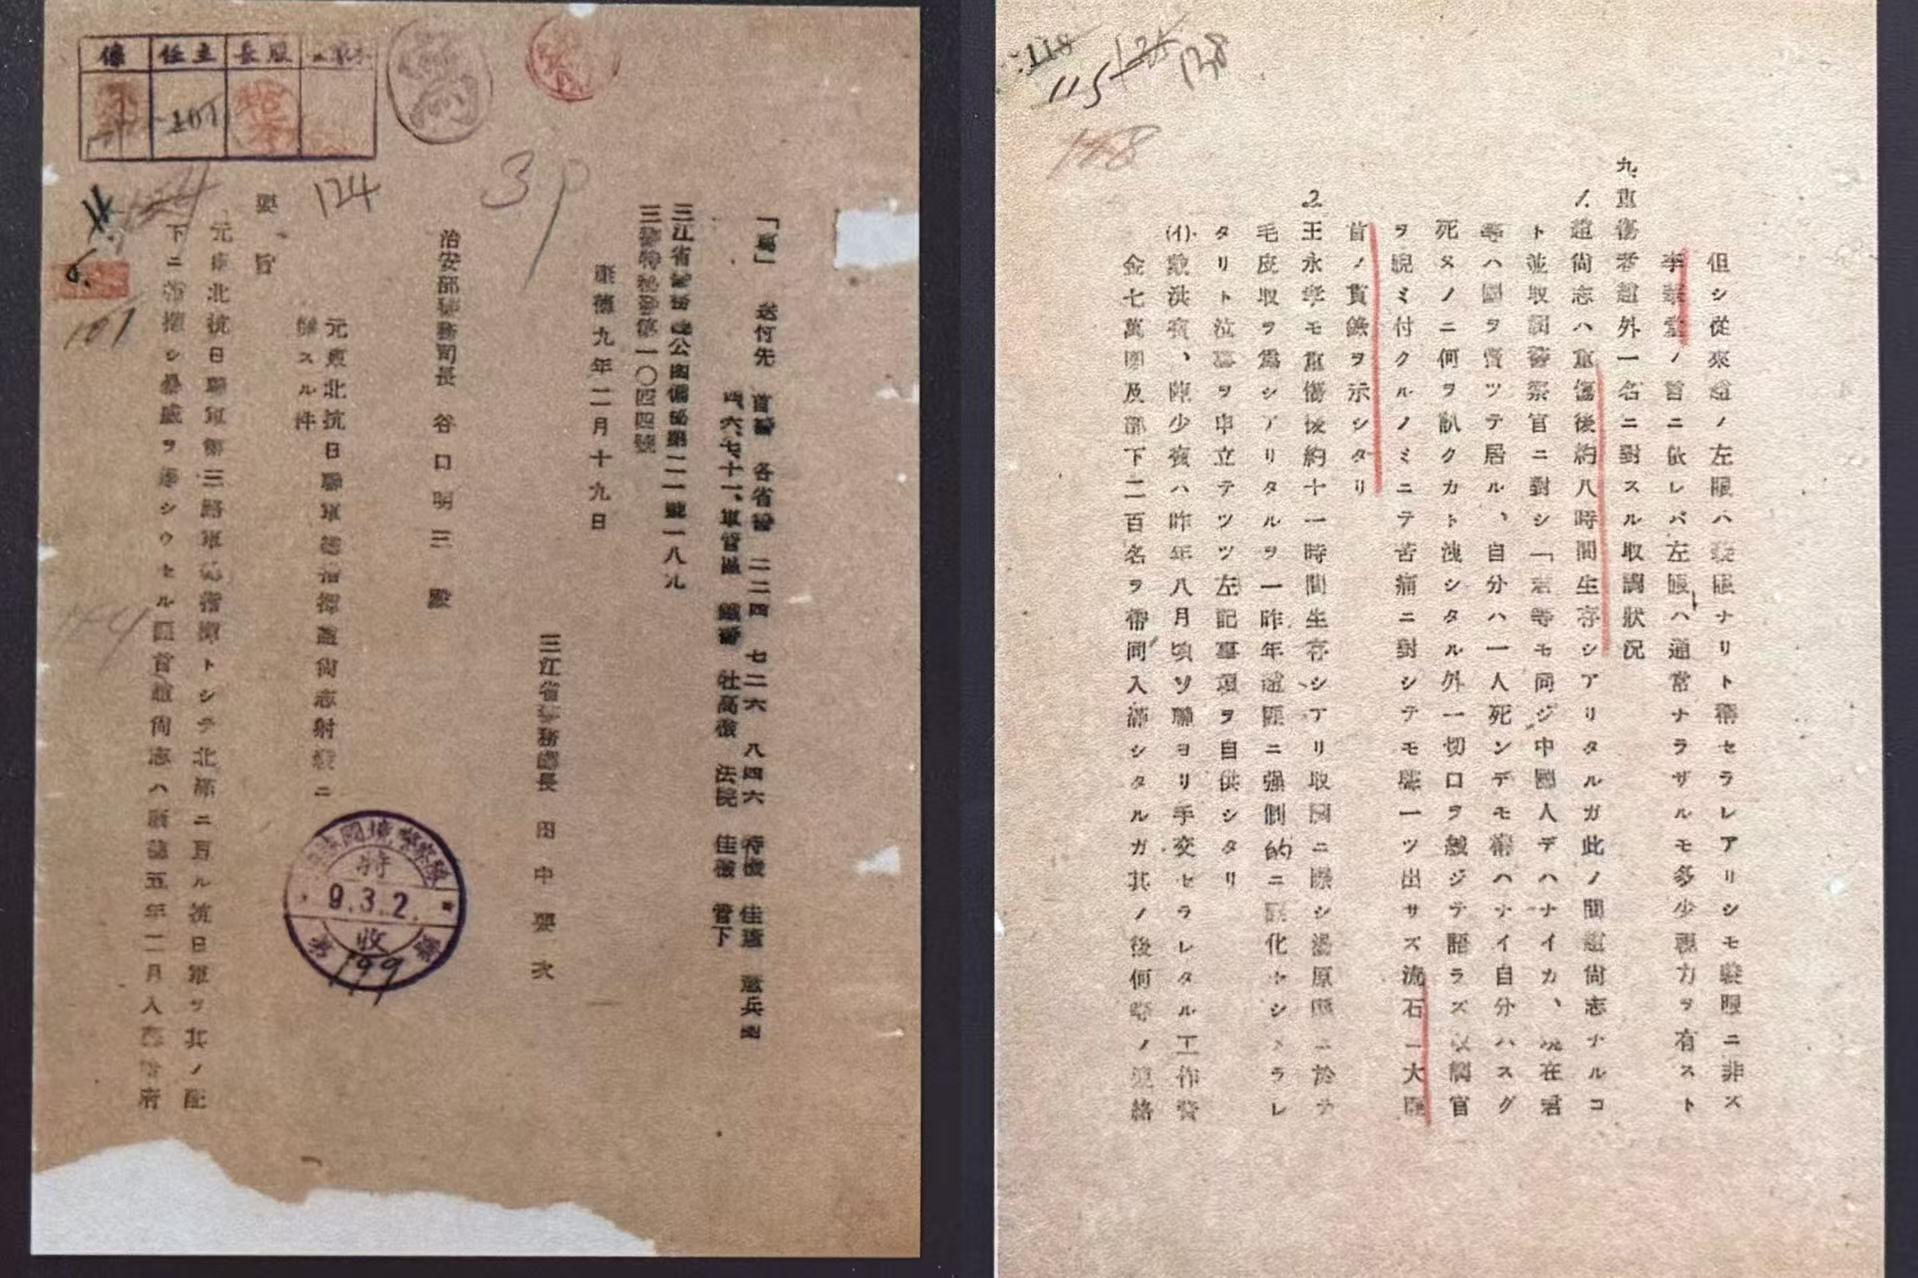 係 主任 股長
124
3P
「寫」 送付先 首警 各省警 二二四 七二六 八四六 特機 佳憲 憲兵團
四、六、七、十一、軍管區 鐵警 社高檢 法院 佳檢 管下
三江省警務
三警特秘第一〇四四號
康德九年二月十九日
三江省警務廳長 田中要次
治安部警務司長 谷口明三 殿
元東北抗日聯軍總指揮趙尚志射殺ニ
關スル件
要旨
元東北抗日聯軍第三路軍總指揮トシテ北滿ニ亘ル抗日軍ヲ其ノ配
下ニ掌握シ暴威ヲ逞シウセル匪首趙尚志ハ康德五年一月入
國境警察隊
特
9.3.2.
收
199
107
118
115
125
128
但シ從來趙ノ左眼ハ義眼ナリト稱セラレアリシモ義眼ニ非ズ
李華堂ノ言ニ依レバ左眼ハ通常ナラザルモ多少視力ヲ有スト
九、重傷者趙外一名ニ對スル取調狀況
1. 趙尚志ハ重傷後約八時間生存シアリタルガ此ノ間趙尚志ナルコ
ト並取調警察官ニ對シ「君等モ同ジ中國人デハナイカ、現在君
等ハ國ヲ賣ツテ居ル、自分ハ一人死ンデモ構ハナイ自分ハスグ
死ヌノニ何ヲ訊クカト洩シタル外一切口ヲ緘ジテ語ラズ取調官
ヲ睨ミ付クルノミニテ苦痛ニ對シテモ聲一ツ出サズ流石ニ大匪
首ノ貫錄ヲ示シタリ
2. 王永孝モ重傷後約十一時間生存シアリ取調ニ際シ湯原縣ニ於テ
毛皮取ヲ爲シアリタルヲ一昨年趙匪ニ强制的ニ匪化セシメラレ
タリト泣事ヲ申立テツツ左記事項ヲ自供シタリ
(イ) 戴洪賓、陳少賓ハ昨年八月頃ソ聯ヨリ手交セラレタル工作費
金七萬圓及部下二百名ヲ帶同入滿シタルガ其ノ後何等ノ連絡